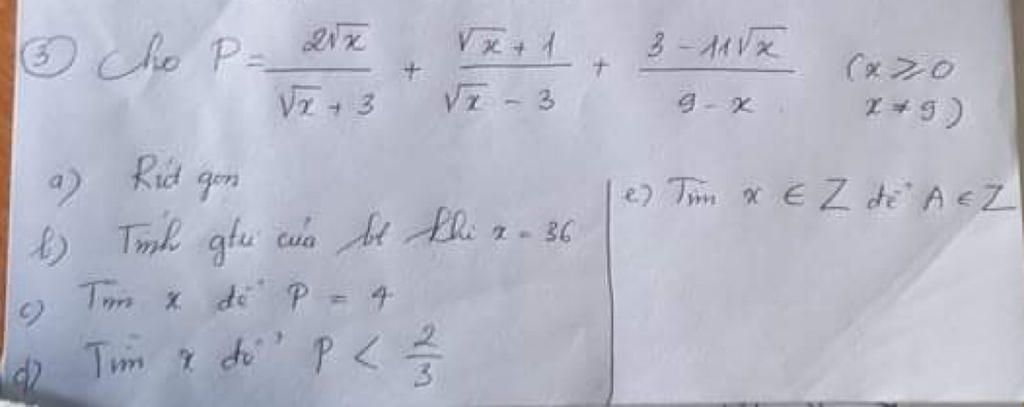 ③ Cho P = \frac{2\sqrt{x}}{\sqrt{x}+3} + \frac{\sqrt{x}+1}{\sqrt{x}-3} + \frac{3-11\sqrt{x}}{9-x} (x ⩾ 0
x ≠ 9)
a) Rút gọn
b) Tính gtư của bt khi x = 36
c) Tìm x để P = 4
d) Tìm x để P < \frac{2}{3}
e) Tìm x ∈ Z để A ∈ Z